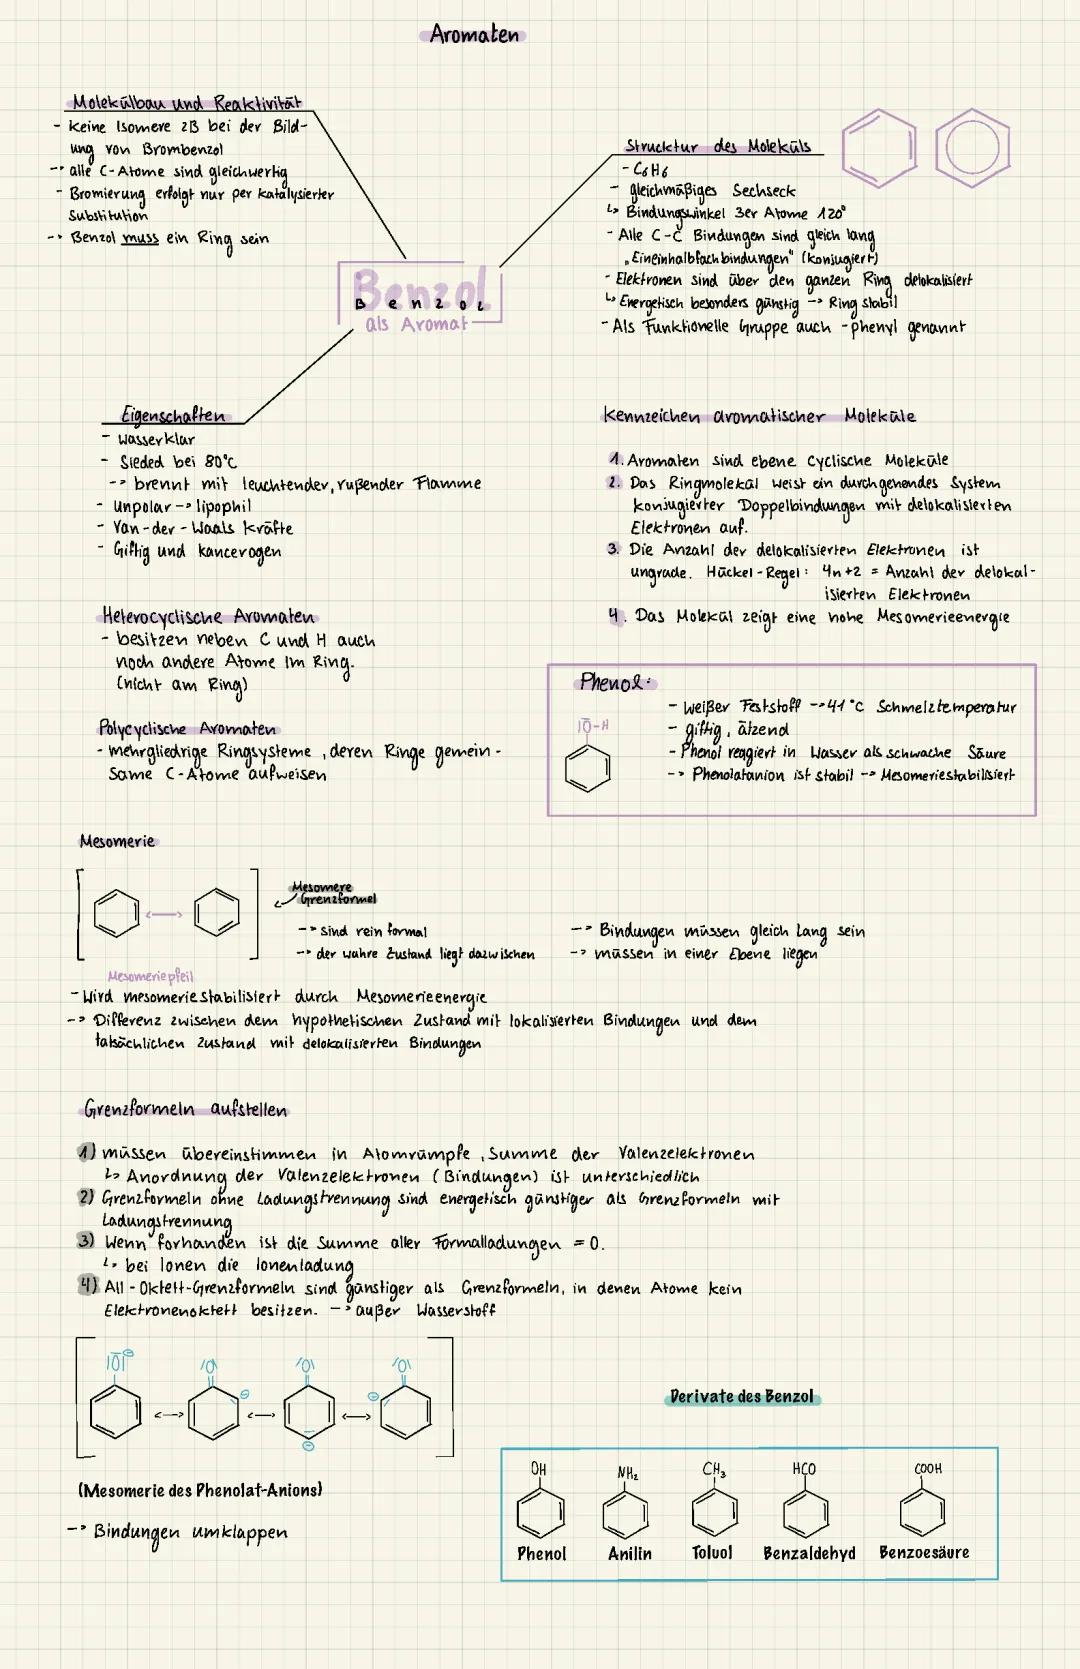 Aromaten
Molekülbau und Reaktivität
- Keine Isomere zB bei der Bild-
ung von Brombenzol
-> alle C-Atome sind gleichwertig
- Bromierung erfolgt nur per katalysierter
Substitution
-> Benzol muss ein Ring sein
Strucktur des Moleküls
- C6H6
- gleichmäßiges Sechseck
↳ Bindungswinkel 3er Atome 120°
- Alle C-C Bindungen sind gleich lang
„Eineinhalbfachbindungen" (konjugiert)
- Elektronen sind über den ganzen Ring delokalisiert
↳ Energetisch besonders günstig -> Ring stabil
- Als Funktionelle Gruppe auch -phenyl genannt
Benzol
Benzol
als Aromat
Eigenschaften
- Wasserklar
- Sieded bei 80°C
-> brennt mit leuchtender, rußender Flamme
- Unpolar -> lipophil
- Van-der-Waals Kräfte
- Giftig und kancerogen
Kennzeichen aromatischer Moleküle
1. Aromaten sind ebene Cyclische Moleküle
2. Das Ringmolekül weist ein durchgehendes System
konjugierter Doppelbindungen mit delokalisierten
Elektronen auf.
3. Die Anzahl der delokalisierten Elektronen ist
ungrade. Hückel-Regel: 4n+2 = Anzahl der delokal-
isierten Elektronen
4. Das Molekül zeigt eine hohe Mesomerieenergie
Heterocyclische Aromaten
- besitzen neben C und H auch
noch andere Atome im Ring.
(nicht am Ring)
Polycyclische Aromaten
- mehrgliedrige Ringsysteme, deren Ringe gemein-
same C-Atome aufweisen
Phenol:
|O-H
- weißer Feststoff -> 41°C Schmelztemperatur
- giftig, ätzend
- Phenol reagiert in Wasser als schwache Säure
-> Phenolatanion ist stabil -> Mesomeriestabilisiert
Mesomerie
Mesomere
Grenzformel
-> sind rein formal
-> der wahre Zustand liegt dazwischen
-> Bindungen müssen gleich lang sein
-> müssen in einer Ebene liegen
Mesomeriepfeil
- Wird mesomeriestabilisiert durch Mesomerieenergie
-> Differenz zwischen dem hypothetischen Zustand mit lokalisierten Bindungen und dem
tatsächlichen Zustand mit delokalisierten Bindungen
Grenzformeln aufstellen
1) müssen übereinstimmen in Atomrümpfe, Summe der Valenzelektronen
↳ Anordnung der Valenzelektronen (Bindungen) ist unterschiedlich
2) Grenzformeln ohne Ladungstrennung sind energetisch günstiger als Grenzformeln mit
Ladungstrennung
3) Wenn forhanden ist die Summe aller Formalladungen = 0.
↳ bei Ionen die Ionenladung
4) All-Oktett-Grenzformeln sind günstiger als Grenzformeln, in denen Atome kein
Elektronenoktett besitzen. -> außer Wasserstoff
|O|⊖ O O O
⊖ ⊖ ⊖
(Mesomerie des Phenolat-Anions)
-> Bindungen umklappen
Derivate des Benzol
OH NH2 CH3 HCO COOH
Phenol Anilin Toluol Benzaldehyd Benzoesäure